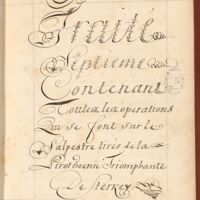 Traité
Septieme
Contenant
Toutes les operations
Qui se font sur le
Salpestre tirés de la
Pirotecnie Triomphante
De Sterkey